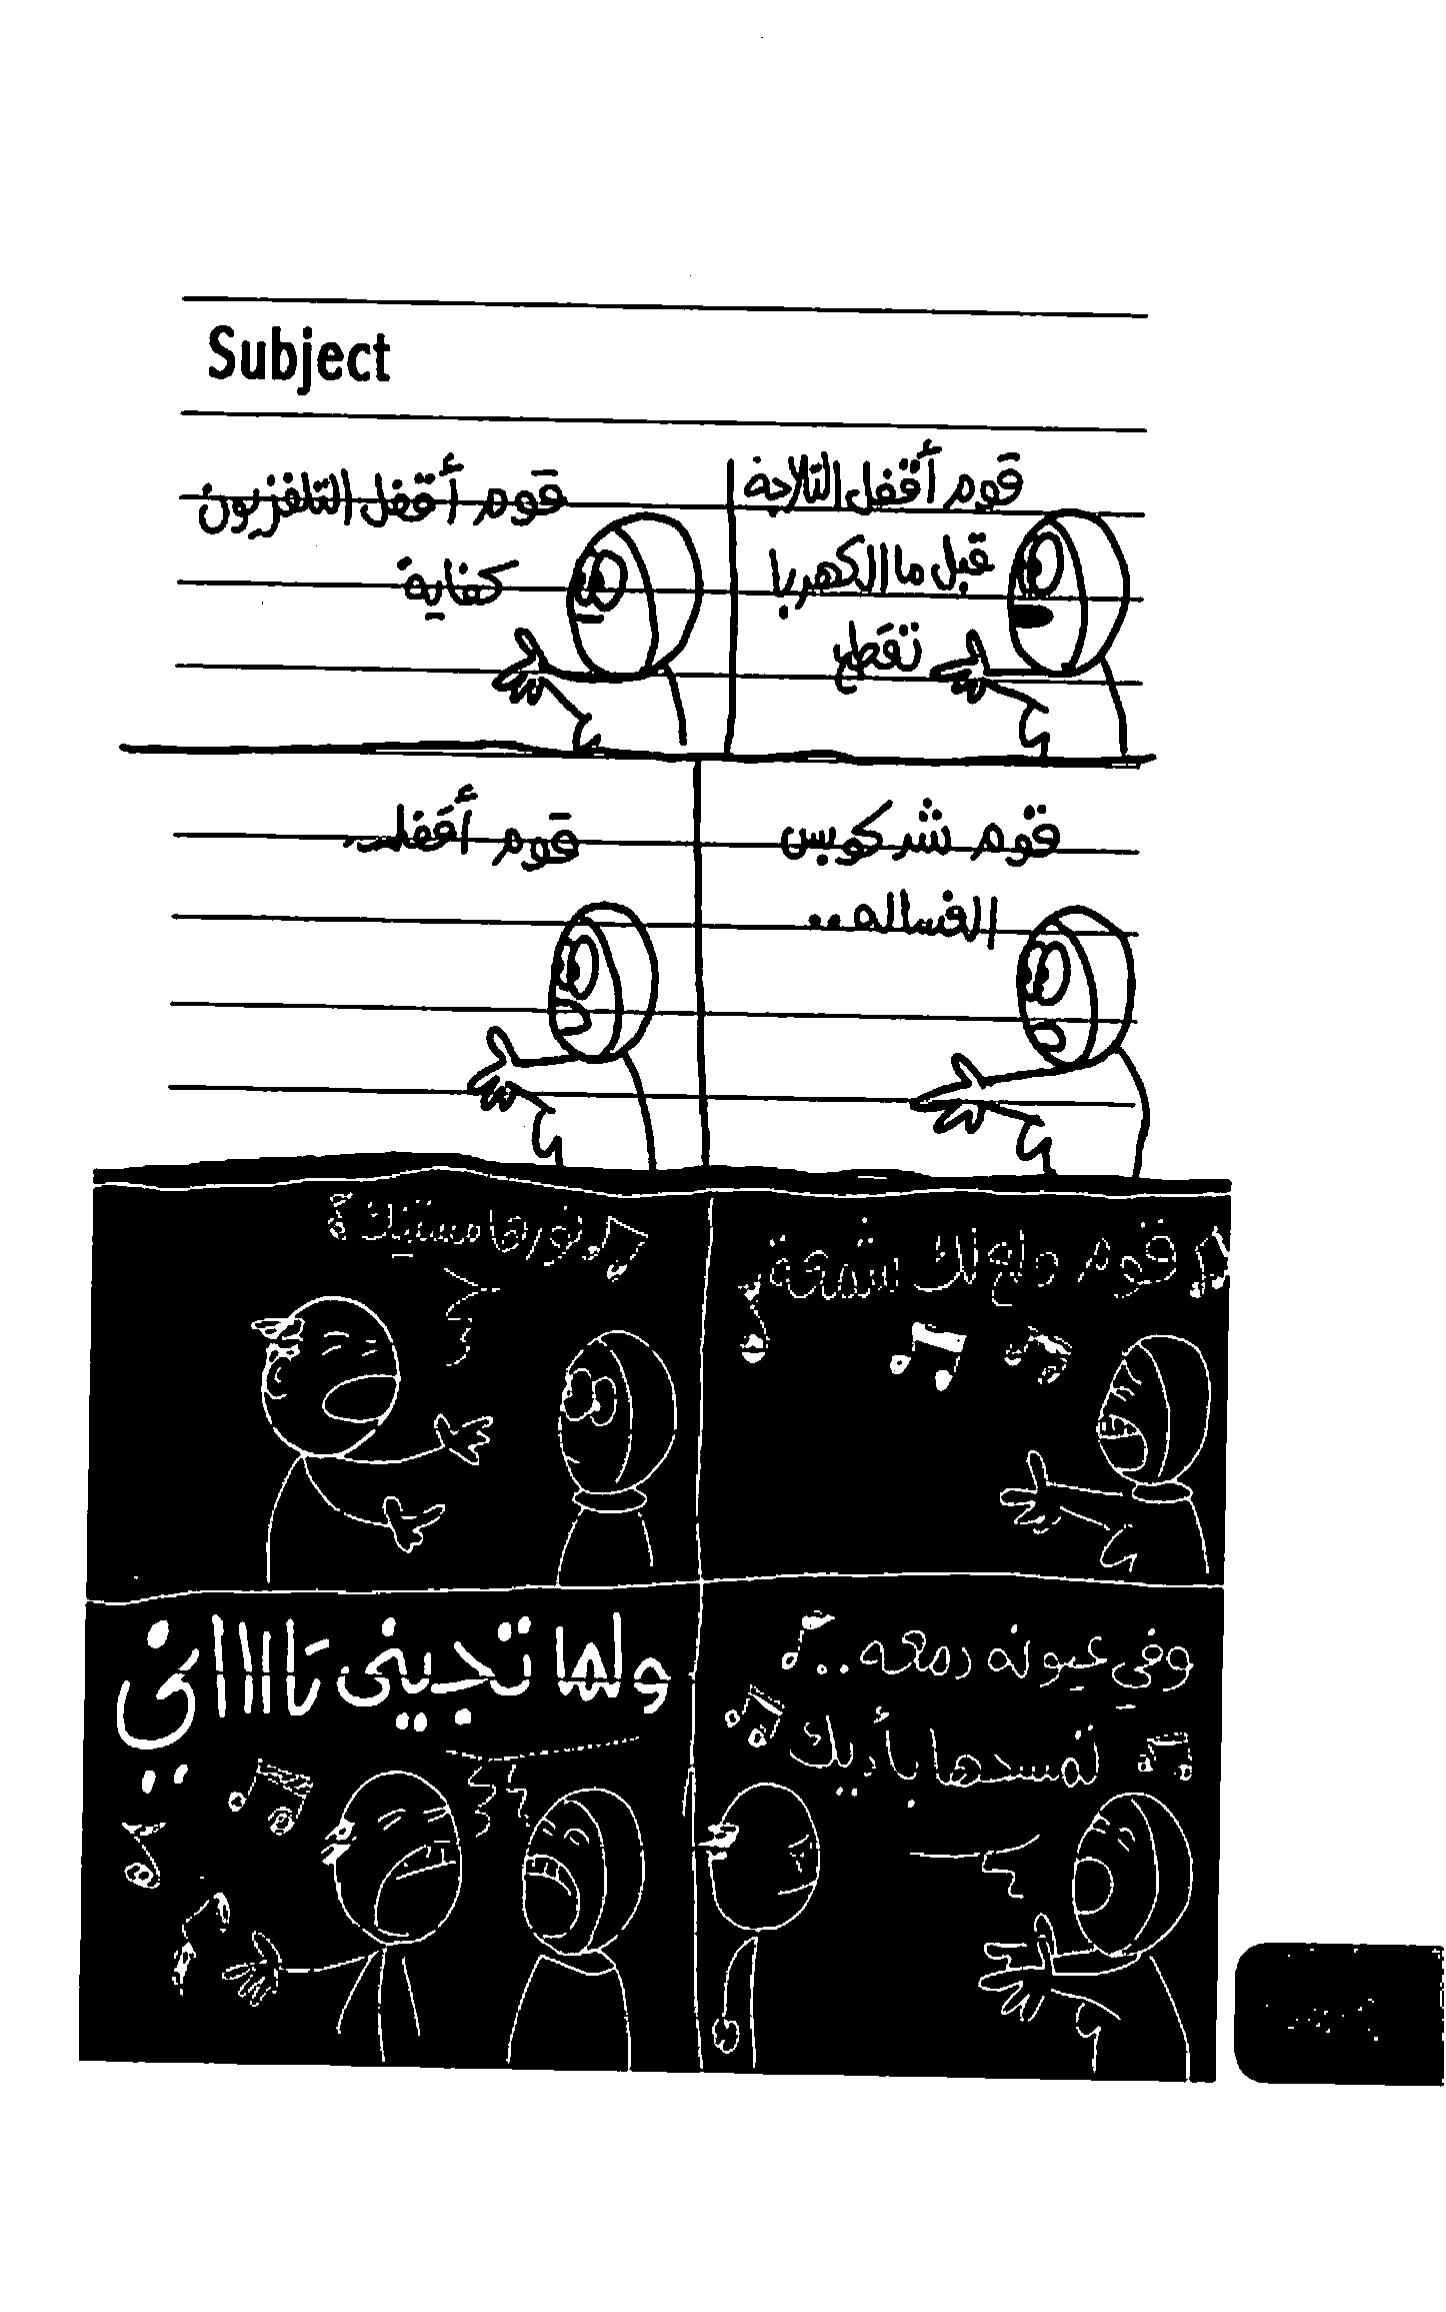 Subject
قوم أقفل التلاجة
قبل ما الكهربا
تقطع
قوم أقفل التلفزيون
كفاية
قوم شد كوبس
الغساله..
قوم أقفلـ
قوم ولع لك شمعة
نورها مستنيك
وفي عيونه دمعه..
تمسحها بأديك
ولما تجيني تااااني
..